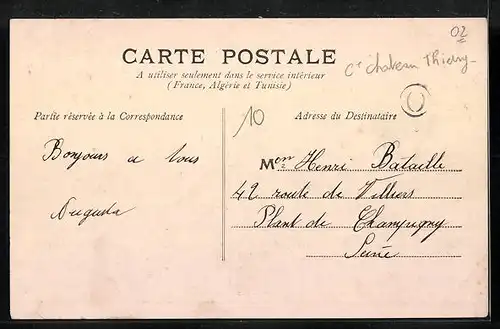 02
Cᵗ Chateau Thierry
CARTE POSTALE
A utiliser seulement dans le service intérieur
(France, Algérie et Tunisie)
Partie réservée à la Correspondance
10
Adresse du Destinataire
Bonjours a tous
Augusta
Mon Henri Bataille
42 route de Villiers
Plant de Champigny
Seine